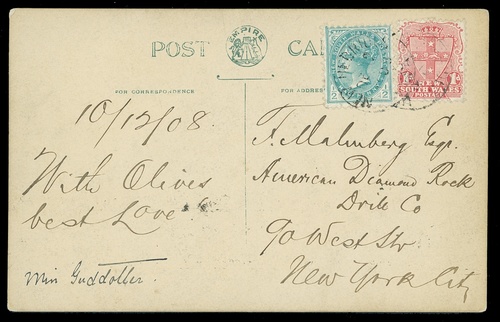 POST CARD
EMPIRE
FOR CORRESPONDENCE
FOR ADDRESS
SOUTH WALES
POSTAGE
10/12/08.
With Olives
best Love
F. Malmberg Esqr.
American Diamond Rock
Drill Co
90 West Str.
New York City